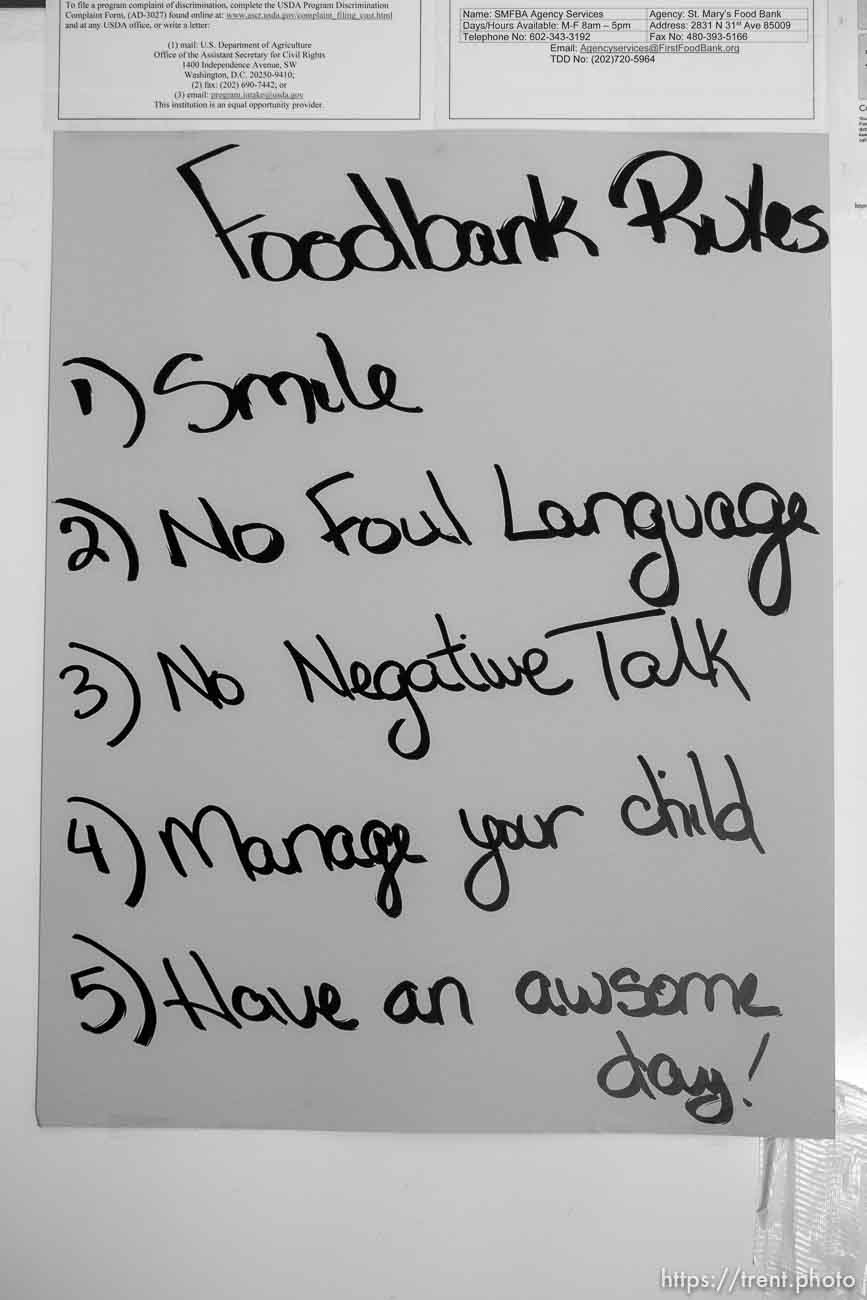 To file a program complaint of discrimination, complete the USDA Program Discrimination
Complaint Form, (AD-3027) found online at: www.ascr.usda.gov/complaint_filing_cust.html
and at any USDA office, or write a letter:
(1) mail: U.S. Department of Agriculture
Office of the Assistant Secretary for Civil Rights
1400 Independence Avenue, SW
Washington, D.C. 20250-9410;
(2) fax: (202) 690-7442; or
(3) email: program.intake@usda.gov
This institution is an equal opportunity provider.
Name: SMFBA Agency Services Agency: St. Mary's Food Bank
Days/Hours Available: M-F 8am – 5pm Address: 2831 N 31st Ave 85009
Telephone No: 602-343-3192 Fax No: 480-393-5166
Email: Agencyservices@FirstFoodBank.org
TDD No: (202)720-5964
Foodbank Rules
1) Smile
2) No Foul Language
3) No Negative Talk
4) Manage your child
5) Have an awsome
day!
https://trent.photo